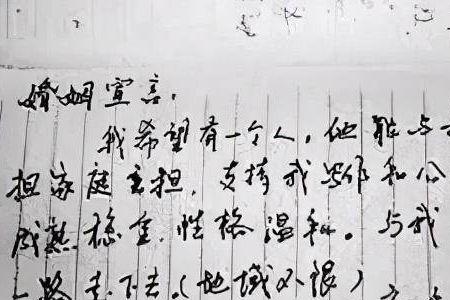 婚姻宣言。
我希望有一个人，他能与
担家庭重担，支持我写作和公
成熟稳重，性格温和。与我
一路走下去。(地域不限)